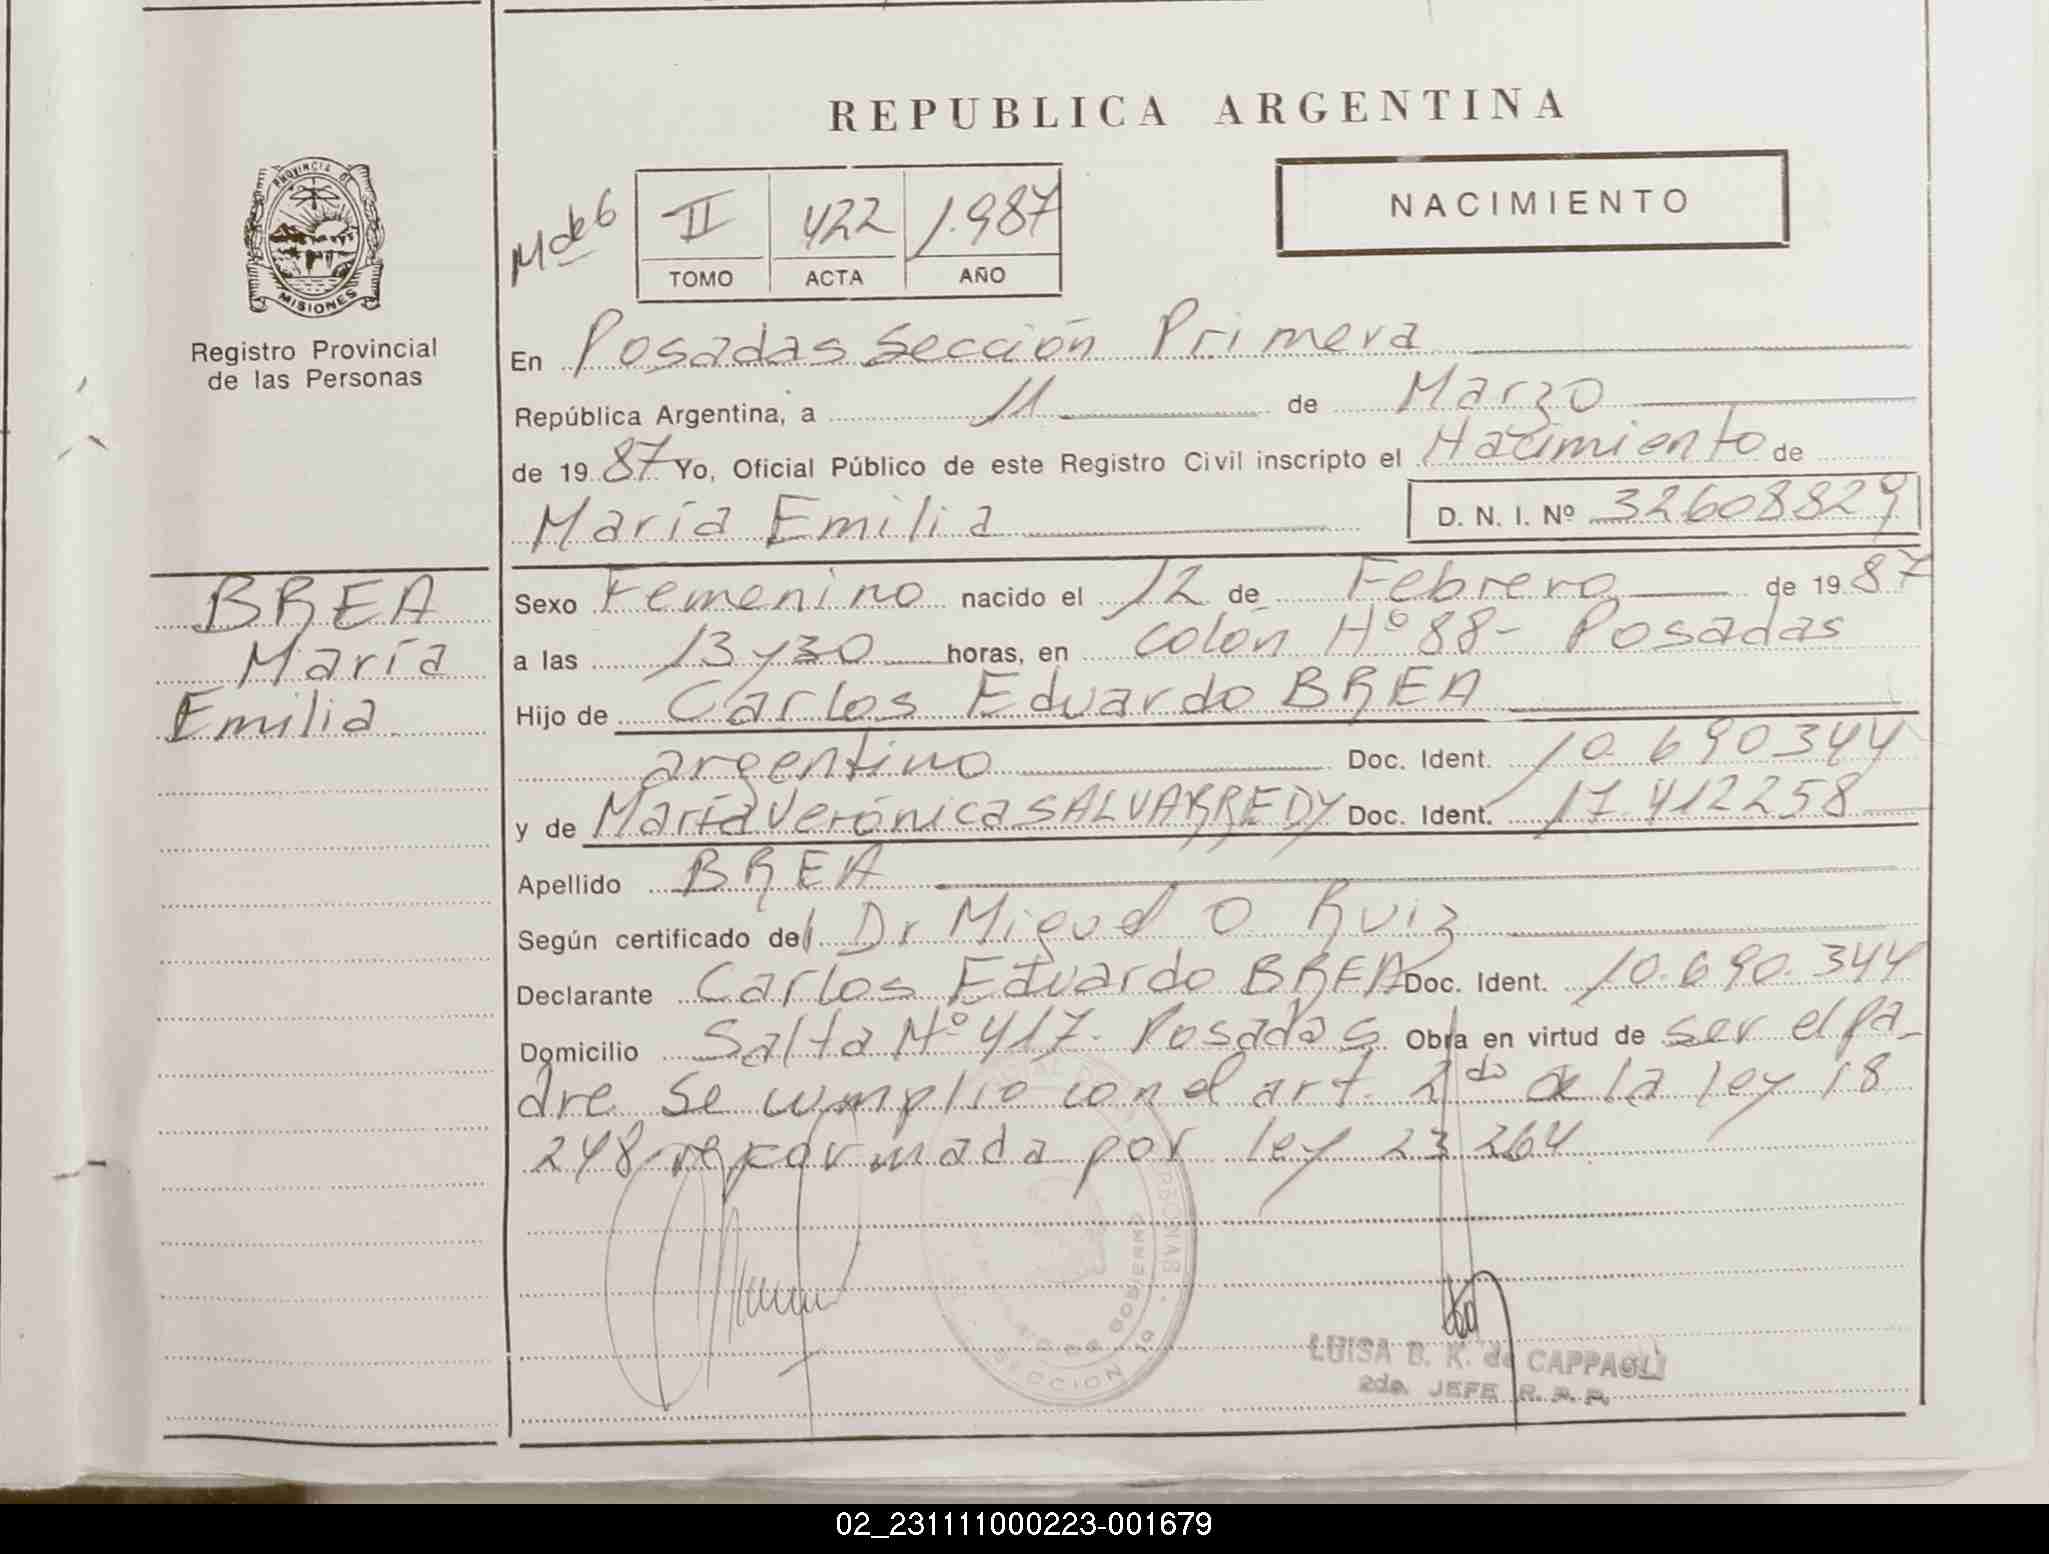 REPUBLICA ARGENTINA
PROVINCIA DE
MISIONES
Registro Provincial
de las Personas
M de 6
II 422 1.987
TOMO ACTA AÑO
NACIMIENTO
En Posadas Sección Primera
República Argentina, a 11 de Marzo
de 19 87 Yo, Oficial Público de este Registro Civil inscripto el Nacimiento de
María Emilia D. N. I. Nº 32608829
BREA
María
Emilia
Sexo Femenino nacido el 12 de Febrero de 19 87
a las 13 y 30 horas, en Colón Nº 88 - Posadas
Hijo de Carlos Eduardo BREA
argentino Doc. Ident. 10.690344
y de María Verónica SALVARREDY Doc. Ident. 17.412258
Apellido BREA
Según certificado del Dr Miguel O Ruiz
Declarante Carlos Eduardo BREA Doc. Ident. 10.690.344
Domicilio Salta Nº 417. Posadas Obra en virtud de ser el pa-
dre Se cumplio con el art. 2do de la ley 18
248 reformada por ley 23 264
DE GOBIERNO
SECCION 1a
LUISA B. K. de CAPPAGLI
2do. JEFE R. P. P.
02_231111000223-001679